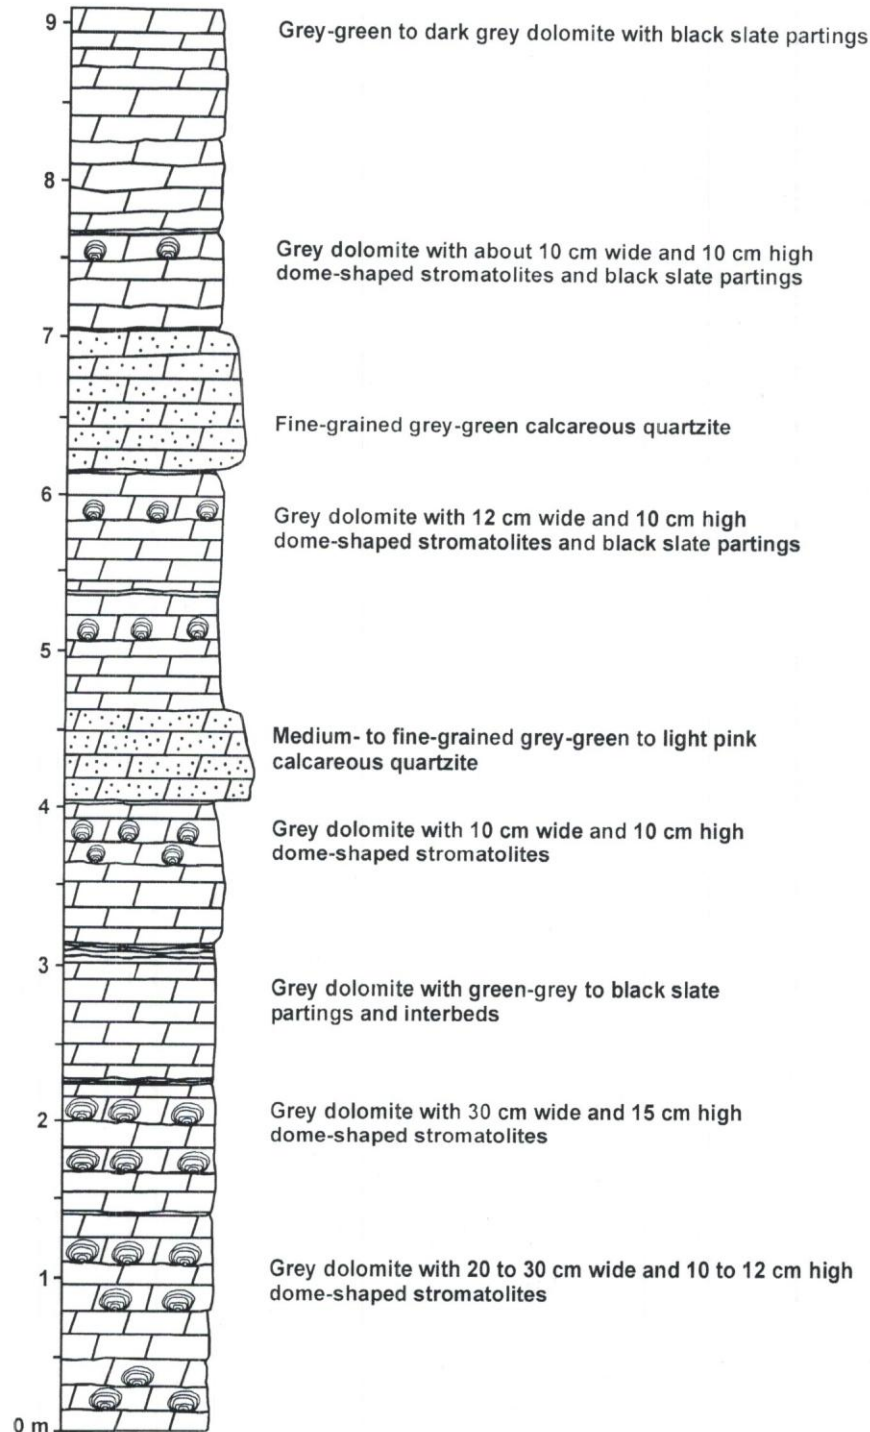 9
Grey-green to dark grey dolomite with black slate partings
8
Grey dolomite with about 10 cm wide and 10 cm high
dome-shaped stromatolites and black slate partings
7
Fine-grained grey-green calcareous quartzite
6
Grey dolomite with 12 cm wide and 10 cm high
dome-shaped stromatolites and black slate partings
5
Medium- to fine-grained grey-green to light pink
calcareous quartzite
4
Grey dolomite with 10 cm wide and 10 cm high
dome-shaped stromatolites
3
Grey dolomite with green-grey to black slate
partings and interbeds
2
Grey dolomite with 30 cm wide and 15 cm high
dome-shaped stromatolites
1
Grey dolomite with 20 to 30 cm wide and 10 to 12 cm high
dome-shaped stromatolites
0 m